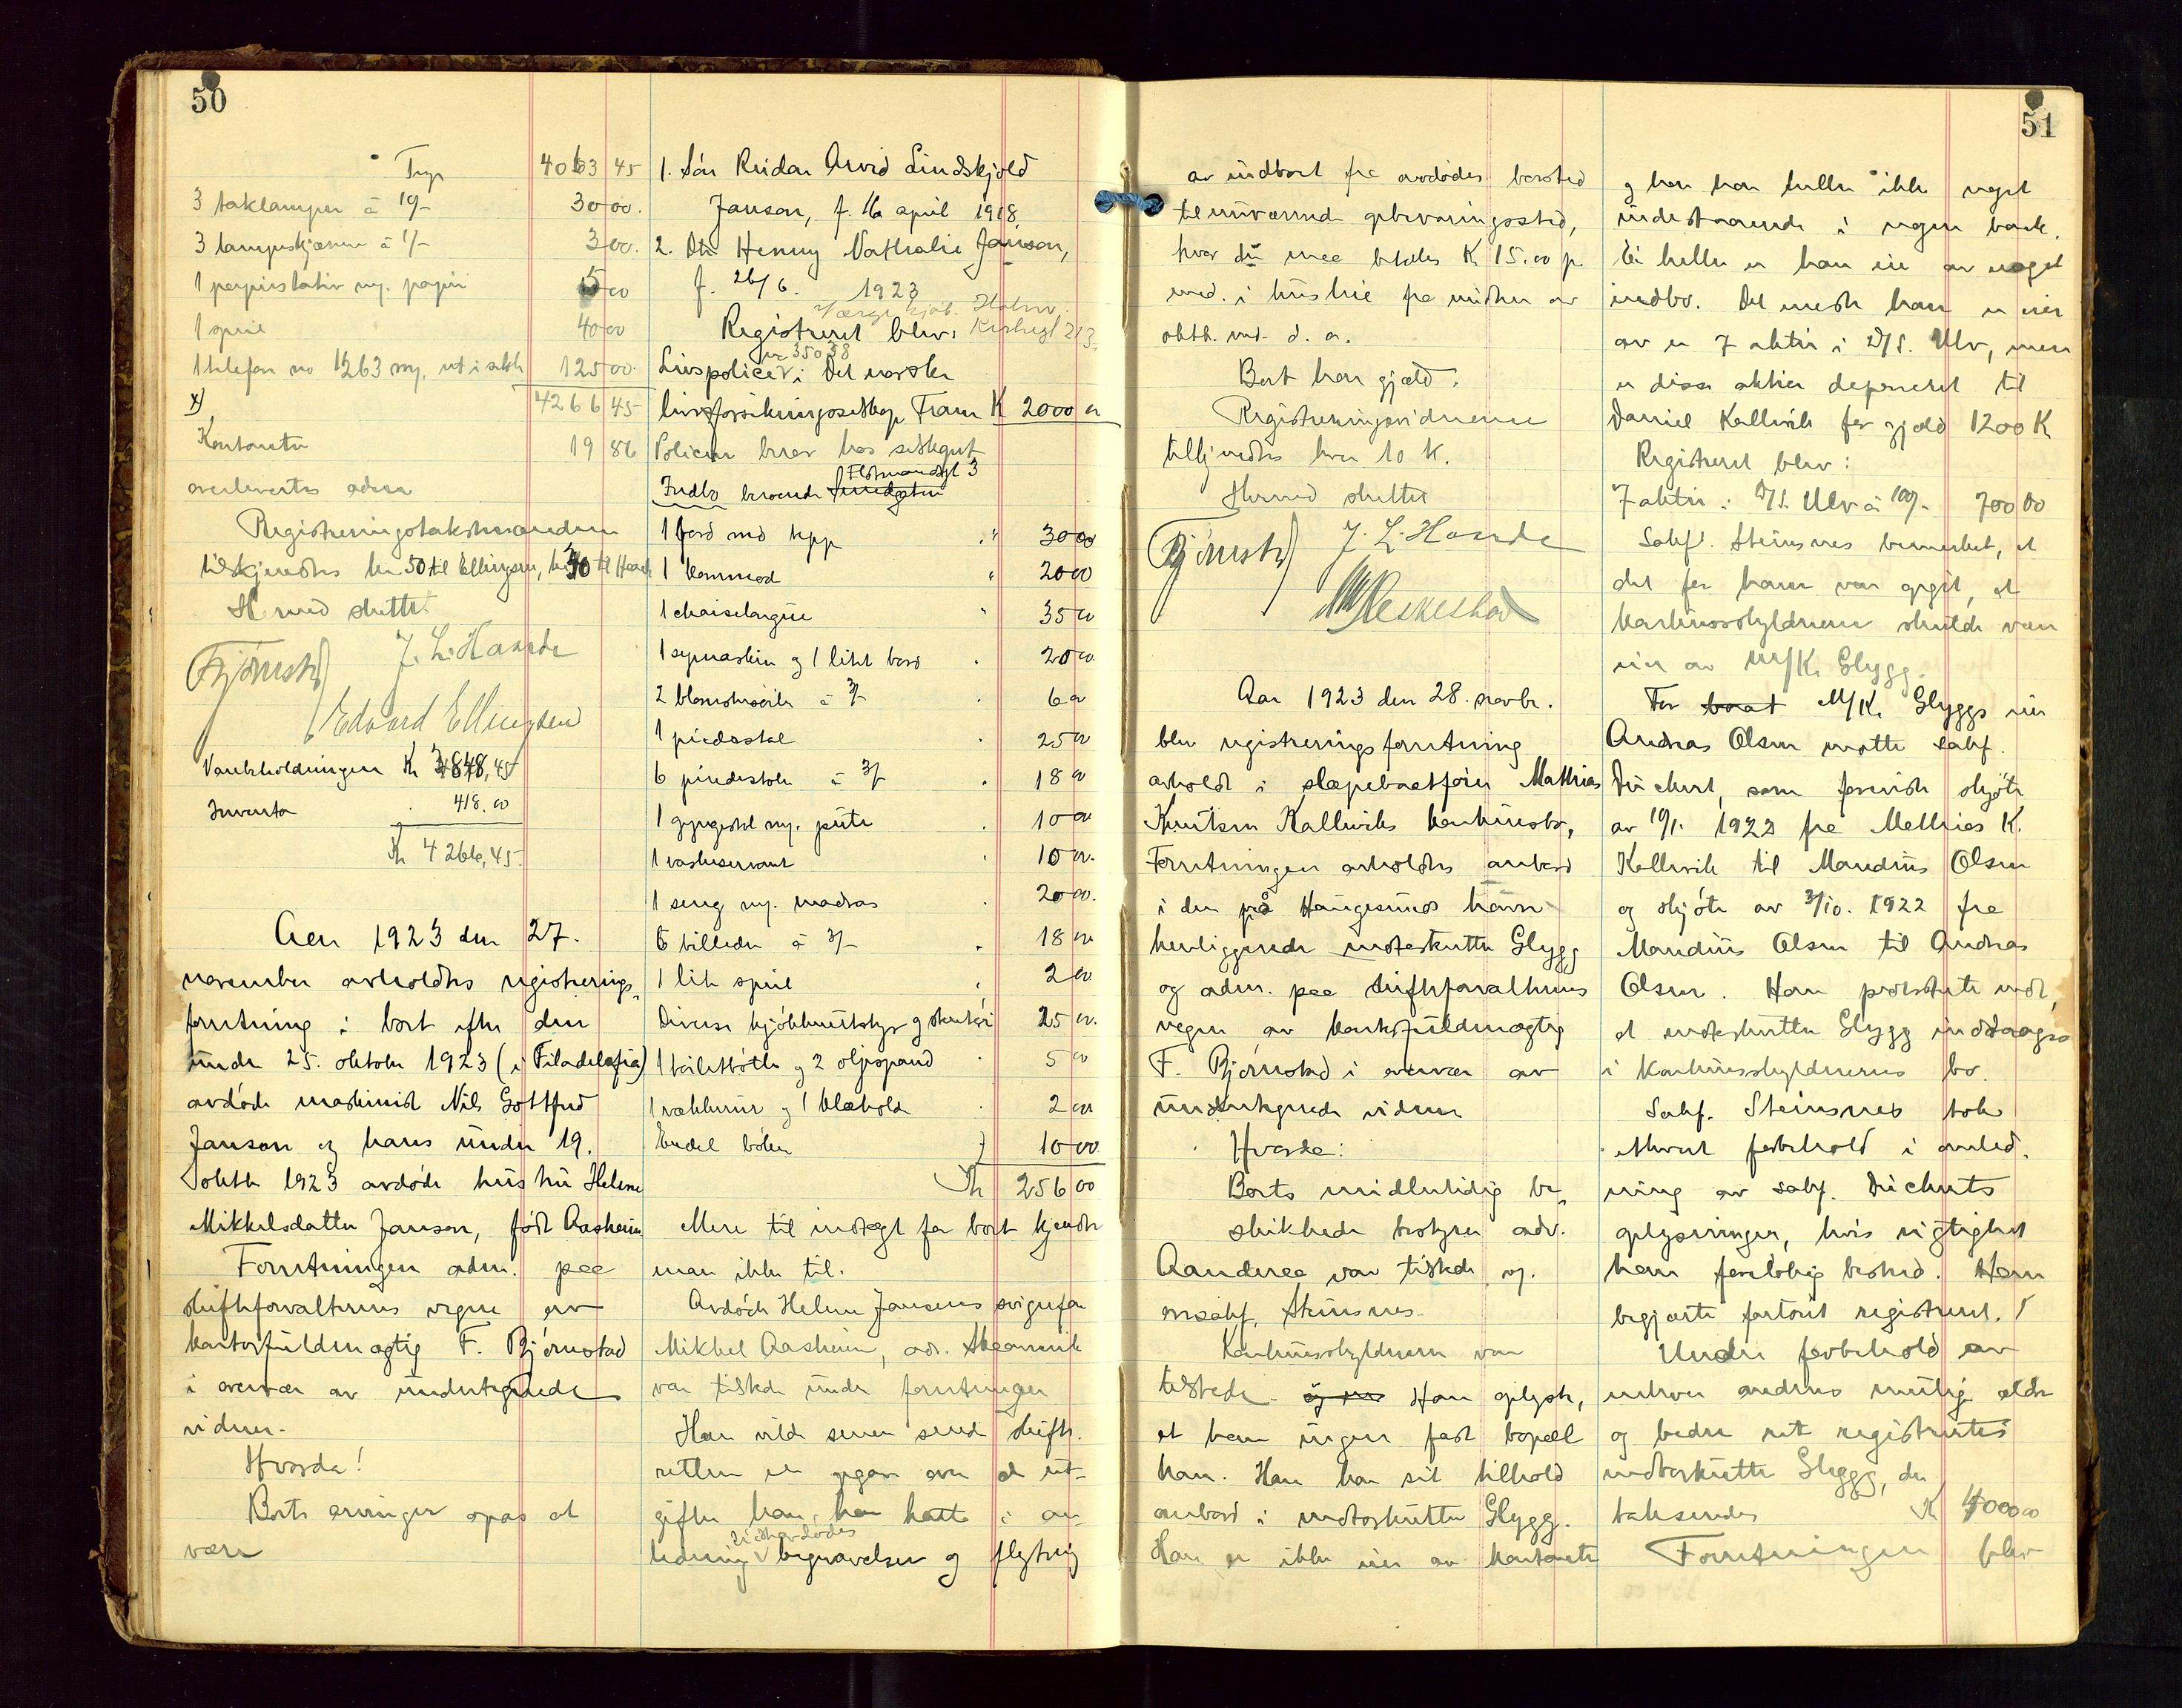 50
Trp 4063 45
3 taklamper à 10/- 30 00.
3 lampeskjærme à 1/- 3 00.
1 papirstativ m. papir 5 00
1 speil 40 00
1 telefon no 1263 m. ut i skk 125 00
x) 4266 45
Kontanter 19 86
overlevertes adm
Registreringstakstmændene
tilkjendtes kr 50 til Ellingsen, kr 40 til Haande
Hermed sluttet.
Bjørnstad J. L. Haande
Edvard Ellingsen
Varebeholdningen Kr 3848,45
Inventar 418.00
Kr 4266,45.
Aar 1923 den 27.
november avholdtes registrerings-
forretning i boet efter den
under 25. oktober 1923 (i Filadelfia)
avdøde maskinist Nils Gottfred
Janson og hans under 19.
oktbr 1923 avdøde hustru Helene
Mikkelsdatter Janson, født Aasheim
Forretningen adm. paa
skifteforvalterens vegne av
kontorfuldmægtig F. Bjørnstad
i overvær av undertegnede
vidner.
Hvorda!
Boets arvinger opgas at
være
1. Søn Reidar Arvid Lindskjold
Janson, f. 16 april 1918
2. Dtr Henny Nathalie Janson,
f. 26/6. 1923
Registreret blev: Kirkegt 213.
nr 35038
Livspolice i Det norske
livsforsikringsselskap Fram K 2000 00
Policen beror hos selskapet
Flotmandsgt 3
Indbo beroende Smedgaten
1 bord med tepp " 30 00
1 kommod " 20 00
1 chaiselongue " 35 00
1 symaskin og 1 litet bord 20 00.
2 blomstersøiler à 3/- 6 00
1 piedestal 25 00
6 pindestoler à 3/- 18 00
1 gyngestol m. pute 10 00
1 vaskeservant 10 00.
1 seng m. madras 20 00.
6 billeder à 3/- 18 00
1 lite speil 2 00
Diverse kjøkkenutstyr og stentøi 25 00.
1 toiletbøtte og 2 oljespand 5 00
1 vækkerur og 1 blækhold 2 00
Endel bøker 10 00
Kr 256 00
Mere til indtægt for boet kjendte
man ikke til.
Avdøde Helene Jansons svigerfar
Mikkel Aasheim, adr. Skaanevik
var tilstede under forretningen
Han vilde senere sende skifte-
retten en opgave over de ut-
gifter han har hatt i an-
ledning begravelsen og flytning
51
av indboet fra avdødes bosted
til nuværende opbevaringssted,
hvor der maa betales K 15.00 p.
md. i husleie fra midten av
oktb. md. d. a.
Boet har gjæld.
Registreringsvidnerne
tilkjendtes hver 10 K.
Hermed sluttet
Bjørnstad J. L. Haande
Aar 1923 den 28. novbr.
blev registreringsforretning
avholdt i slæpebaatfører Mathias
Knutsen Kallviks konkursbo,
Forretningen avholdtes ombord
i den på Haugesunds havn
henliggende motorkutter Glygg
og adm. paa skifteforvalterens
vegne av kontorfuldmægtig
F. Bjørnstad i overvær av
undertegnede vidner
Hvorda:
Boets midlertidig be-
skikkede bestyrer adv.
Aanderaa var tilstede og.
ovrsakf. Steinsnes.
Konkursskyldneren var
tilstede. og er Han oplyste,
at han ingen fast bopæl
har. Han har sit tilhold
ombord i motorkutter Glygg.
Han er ikke eier av kontanter
og han har heller ikke noget
indestaaende i nogen bank.
Ei heller er han eier av noget
indbo. Det meste han er eier
av er 7 aktier i D/S. Ulv, men
er disse aktier deponeret til
Daniel Kallvik for gjæld 1200 K
Registreret blev:
7 aktier i D/S. Ulv à 100/- 700 00
Sakf. Steinsnes bemerket, at
det for ham var opgit, at
konkursskyldneren skulde være
eier av M/K. Glygg.
For baat M/K. Glyggs eier
Andreas Olsen møtte sakf.
Duckert, som foreviste skjøte
av 10/1. 1922 fra Mathias K.
Kallvik til Mandius Olsen
og skjøte av 3/10. 1922 fra
Mandius Olsen til Andreas
Olsen. Han protesterte mot,
at motorkutter Glygg inddrages
i Konkursskyldnerens bo.
Sakf. Steinsnes tok
ethvert forbehold i anled-
ning av sakf. Duckerts
oplysninger, hvis rigtighet
han foreløbig bestred. Han
begjærte fartøiet registreret.
Under forbehold av
enhver andens mulig eldre
og bedre ret registrertes
motorkutter Glygg, der
takseredes K 4000 00
Forretningen blev